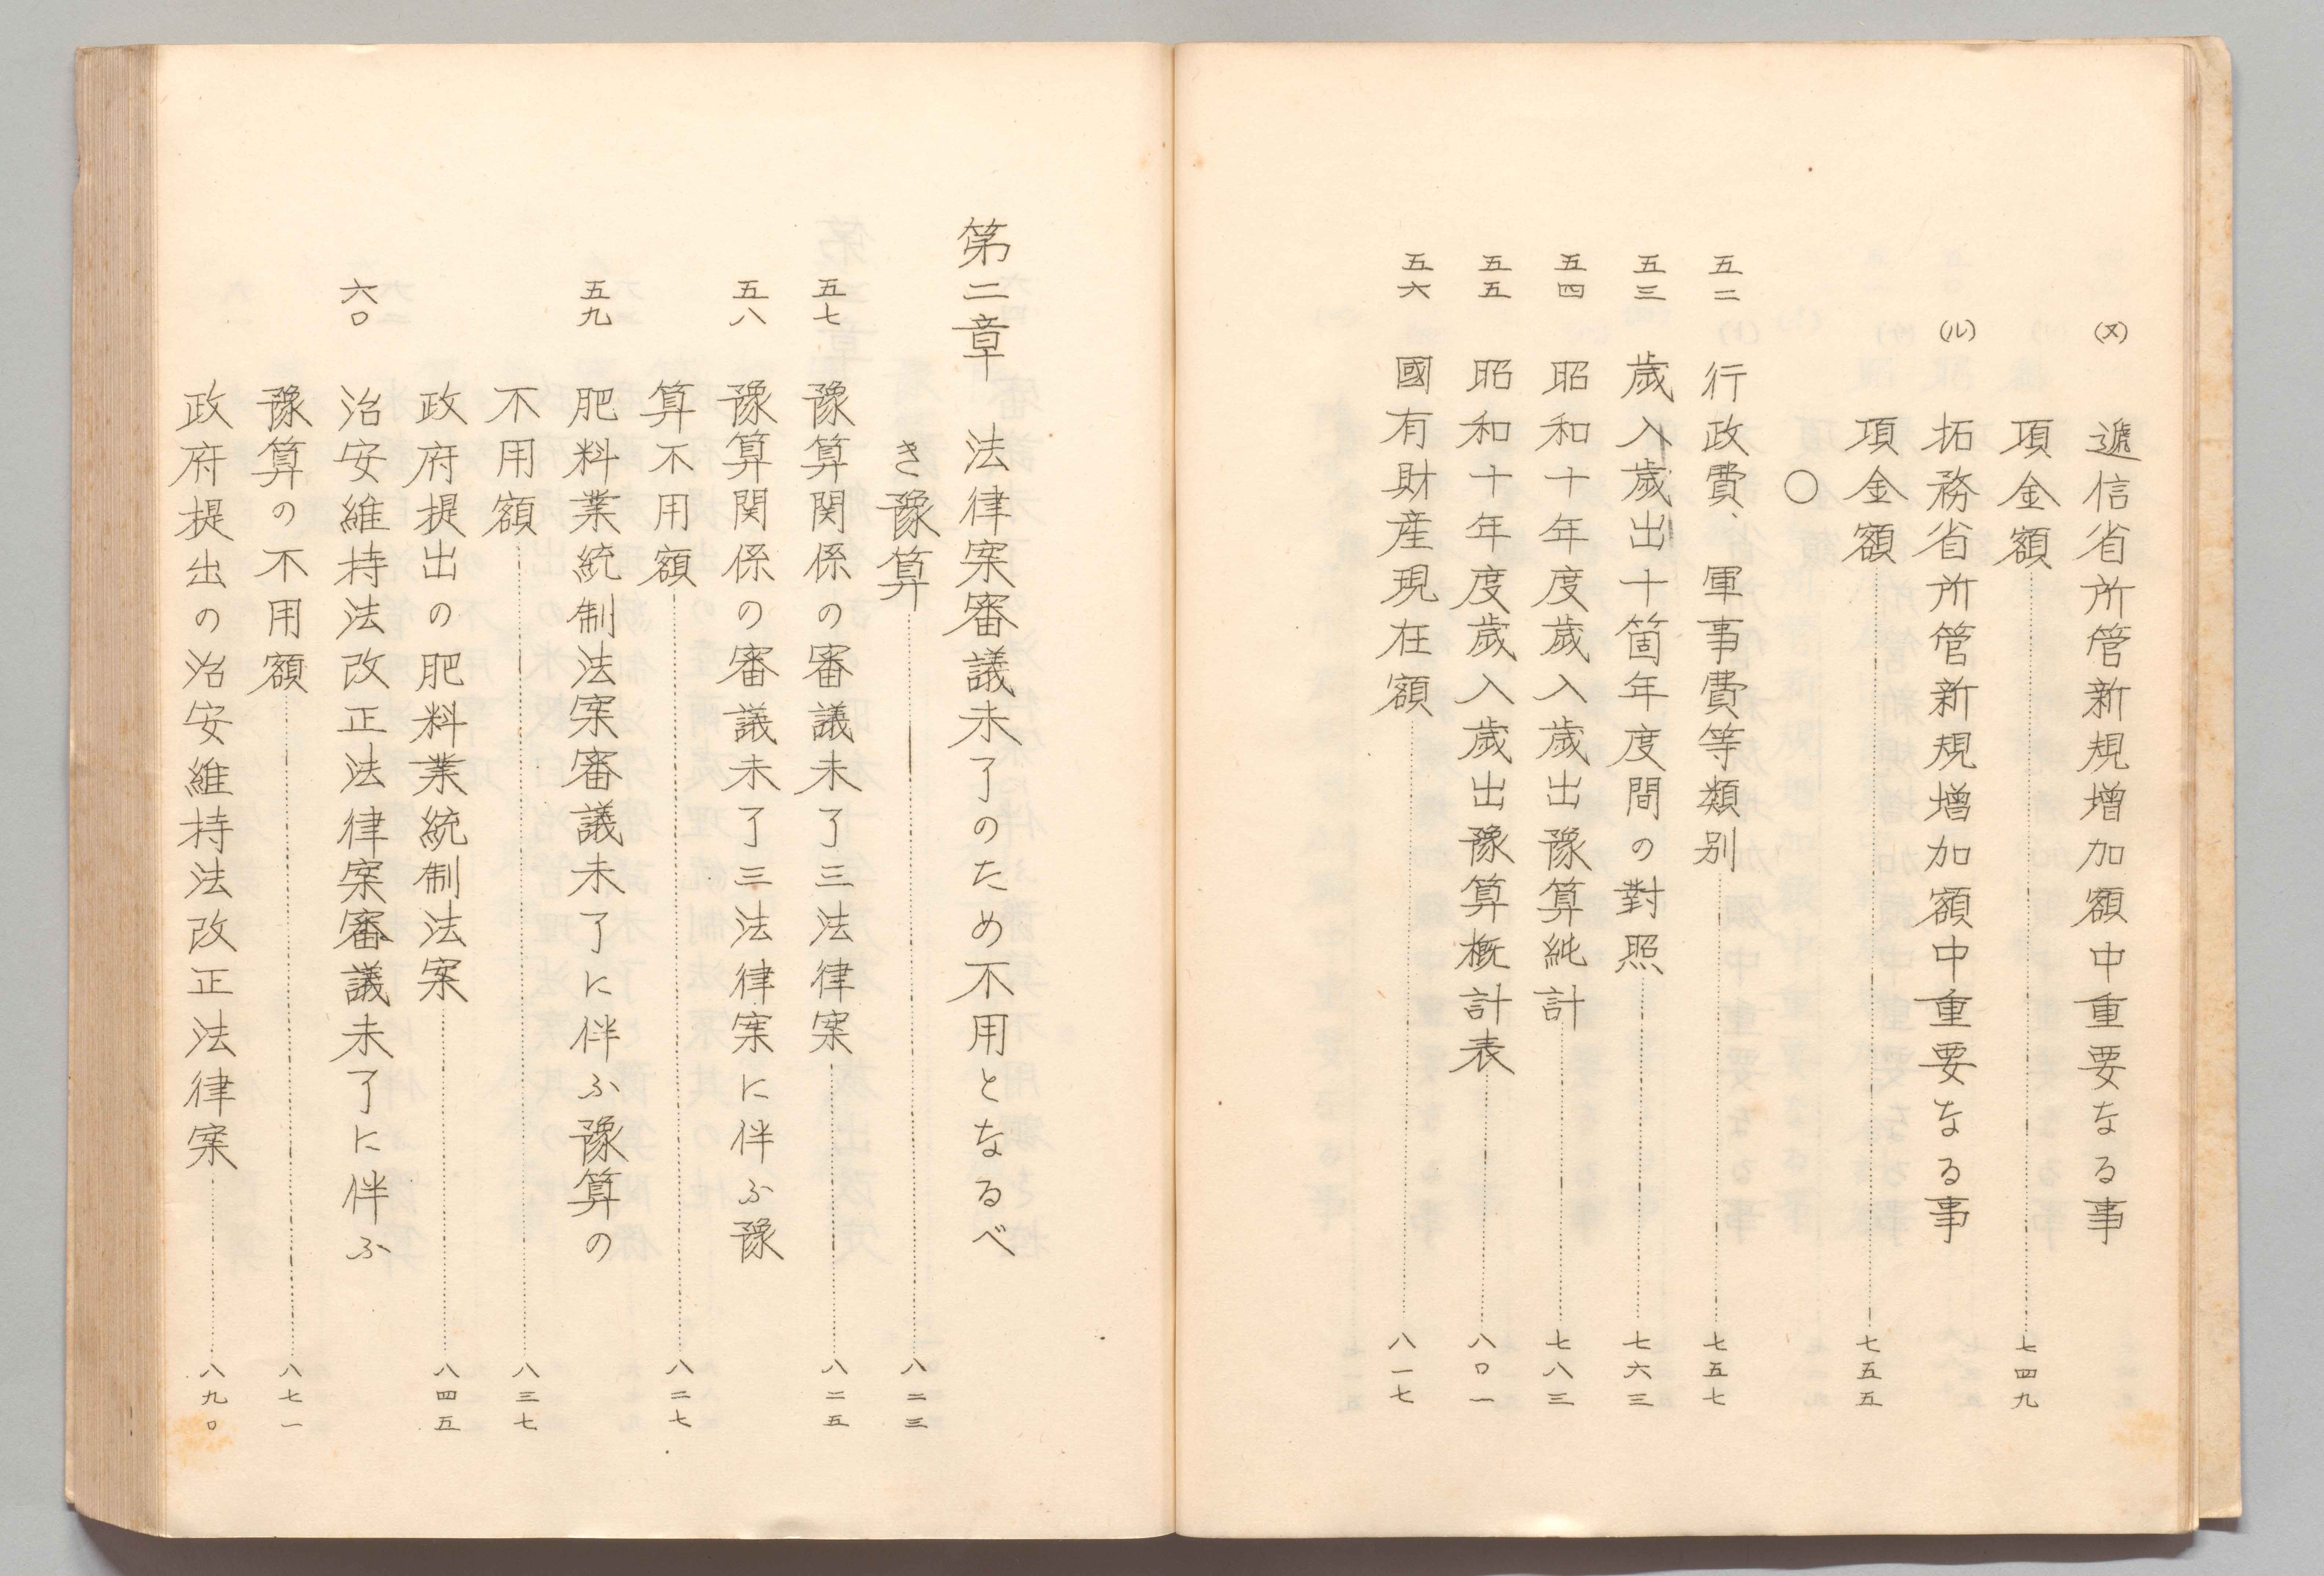 (ヌ) 遞信省所管新規增加額中重要なる事
項金額……七四九
(ル) 拓務省所管新規增加額中重要なる事
項金額……七五五
○
五二 行政費、軍事費等類別……七五七
五三 歲入歲出十箇年度間の對照……七六三
五四 昭和十年度歲入歲出豫算純計……七八三
五五 昭和十年度歲入歲出豫算概計表……八〇一
五六 國有財産現在額……八一七
第二章 法律案審議未了のため不用となるべ
き豫算……八二三
五七 豫算関係の審議未了三法律案……八二五
五八 豫算関係の審議未了三法律案に伴ふ豫
算不用額……八二七
五九 肥料業統制法案審議未了に伴ふ豫算の
不用額……八三七
政府提出の肥料業統制法案……八四五
六〇 治安維持法改正法律案審議未了に伴ふ
豫算の不用額……八七一
政府提出の治安維持法改正法律案……八九〇